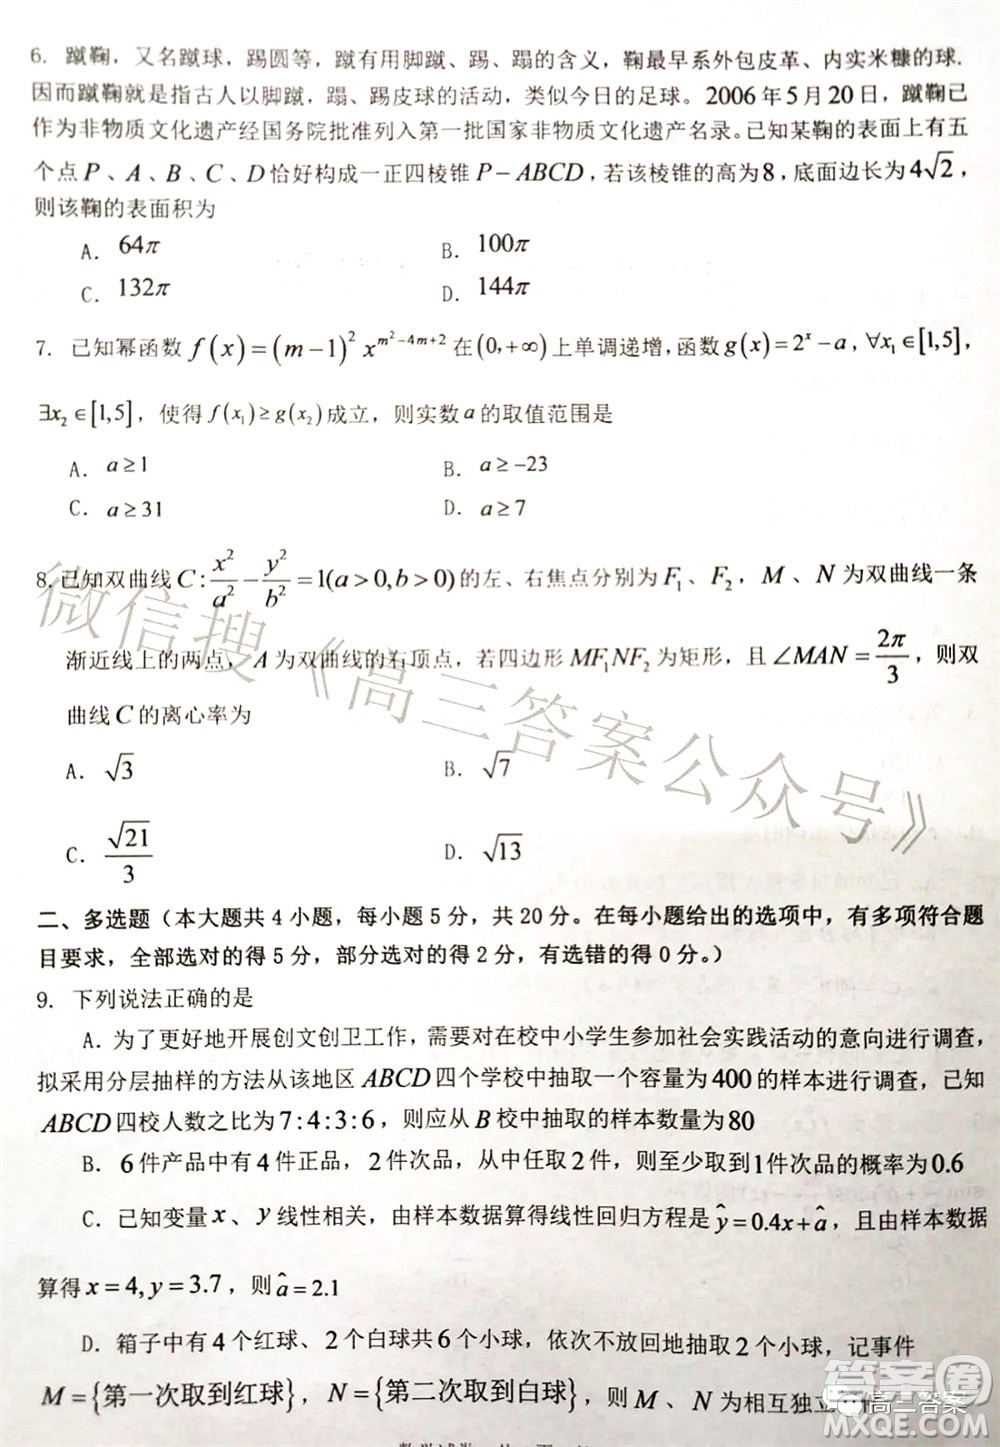 6. 蹴鞠，又名蹴球，踢圆等，蹴有用脚蹴、踢、蹋的含义，鞠最早系外包皮革、内实米糠的球.
因而蹴鞠就是指古人以脚蹴，蹋、踢皮球的活动，类似今日的足球。2006年5月20日，蹴鞠已
作为非物质文化遗产经国务院批准列入第一批国家非物质文化遗产名录。已知某鞠的表面上有五
个点 P、A、B、C、D恰好构成一正四棱锥 P-ABCD，若该棱锥的高为8，底面边长为4√2，
则该鞠的表面积为
A. 64π B. 100π
C. 132π D. 144π
7. 已知幂函数 f(x)=(m-1)² x^(m²-4m+2) 在(0,+∞)上单调递增，函数g(x)=2^x-a，∀x₁∈[1,5]，
∃x₂∈[1,5]，使得 f(x₁)≥g(x₂)成立，则实数 a 的取值范围是
A. a≥1 B. a≥-23
C. a≥31 D. a≥7
8. 已知双曲线C:x²/a²-y²/b²=1(a>0,b>0)的左、右焦点分别为F₁、F₂，M、N为双曲线一条
渐近线上的两点，A为双曲线的右顶点，若四边形MF₁NF₂为矩形，且∠MAN=2π/3，则双
曲线C的离心率为
A. √3 B. √7
C. √21/3 D. √13
二、多选题（本大题共4小题，每小题5分，共20分。在每小题给出的选项中，有多项符合题
目要求，全部选对的得5分，部分选对的得2分，有选错的得0分。）
9. 下列说法正确的是
A. 为了更好地开展创文创卫工作，需要对在校中小学生参加社会实践活动的意向进行调查，
拟采用分层抽样的方法从该地区ABCD四个学校中抽取一个容量为400的样本进行调查，已知
ABCD四校人数之比为7:4:3:6，则应从B校中抽取的样本数量为80
B. 6件产品中有4件正品，2件次品，从中任取2件，则至少取到1件次品的概率为0.6
C. 已知变量x、y线性相关，由样本数据算得线性回归方程是ŷ=0.4x+â，且由样本数据
算得x=4,y=3.7，则â=2.1
D. 箱子中有4个红球、2个白球共6个小球，依次不放回地抽取2个小球，记事件
M={第一次取到红球}，N={第二次取到白球}，则M、N为相互独立
微信搜《高三答案公众号》
答案圈
高三答案
MXQE.COM